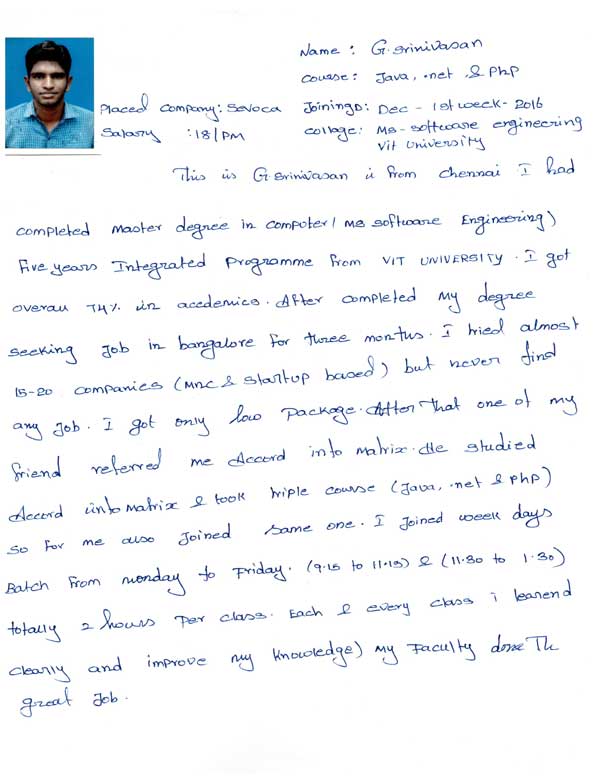 Name : G. Srinivasan
Course: Java, .net & PhP
Placed Company: Sevoca Joining: Dec - 1st week - 2016
Salary : 18/PM College: MS - Software engineering
Vit University
This is G Srinivasan is from chennai I had
completed Master degree in computer ( MS software Engineering)
Five years Integrated Programme from VIT UNIVERSITY. I got
overall 74% in acedemics. After completed My degree
seeking Job in bangalore for three months. I tried almost
15-20 companies (MNC & startup based) but never find
any Job. I got only low package. After That one of my
friend referred me Accord info matrix. He studied
Accord info Matrix & took triple course (Java, .net & PhP)
So for me also Joined same one. I Joined week days
Batch from monday to Friday. (9.15 to 11.15) & (11.30 to 1.30)
totally 2 hours Per class. Each & every class i learend
clearly and improve my knowledge) My Faculty done The
great Job.